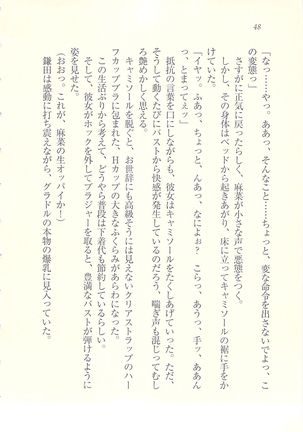 48
「なっ……やっ。ああっ、そんなこと……ちょっと、変な命令を出さないでよっ、こ
の変態っ」
さすがに正気に戻ったらしく、麻菜が小さな声で悪態をつく。
しかし、その身体はベッドから起きあがり、床に立ってキャミソールの裾に手をか
けていた。
「イヤッ。ふあっ、ちょっと、んあっ、なによぉっ？　こらっ、あうっ、手ッ、ああん
っ、とまってぇッ」
抵抗の言葉を口にしながらも、彼女はキャミソールをたくしあげていった。ただ、
そうして動くたびにバストから快感が発生しているのだろう、喘ぎ声も混じってむし
ろ艶めかしく思える。
キャミソールを脱ぐと、お世辞にも高級そうには見えないクリアストラップのハー
フカップブラに包まれた、Hカップの大きなふくらみがあらわになった。
この生活ぶりから考えて、どうやら普段は下着代も節約しているらしい。
そして、彼女がホックを外してブラジャーを取ると、豊満なバストが弾けるように
姿を見せた。
（おおっ。これが、麻菜の生オッパイか！）
鎌田は感動に打ち震えながら、グラドルの本物の爆乳に見入っていた。